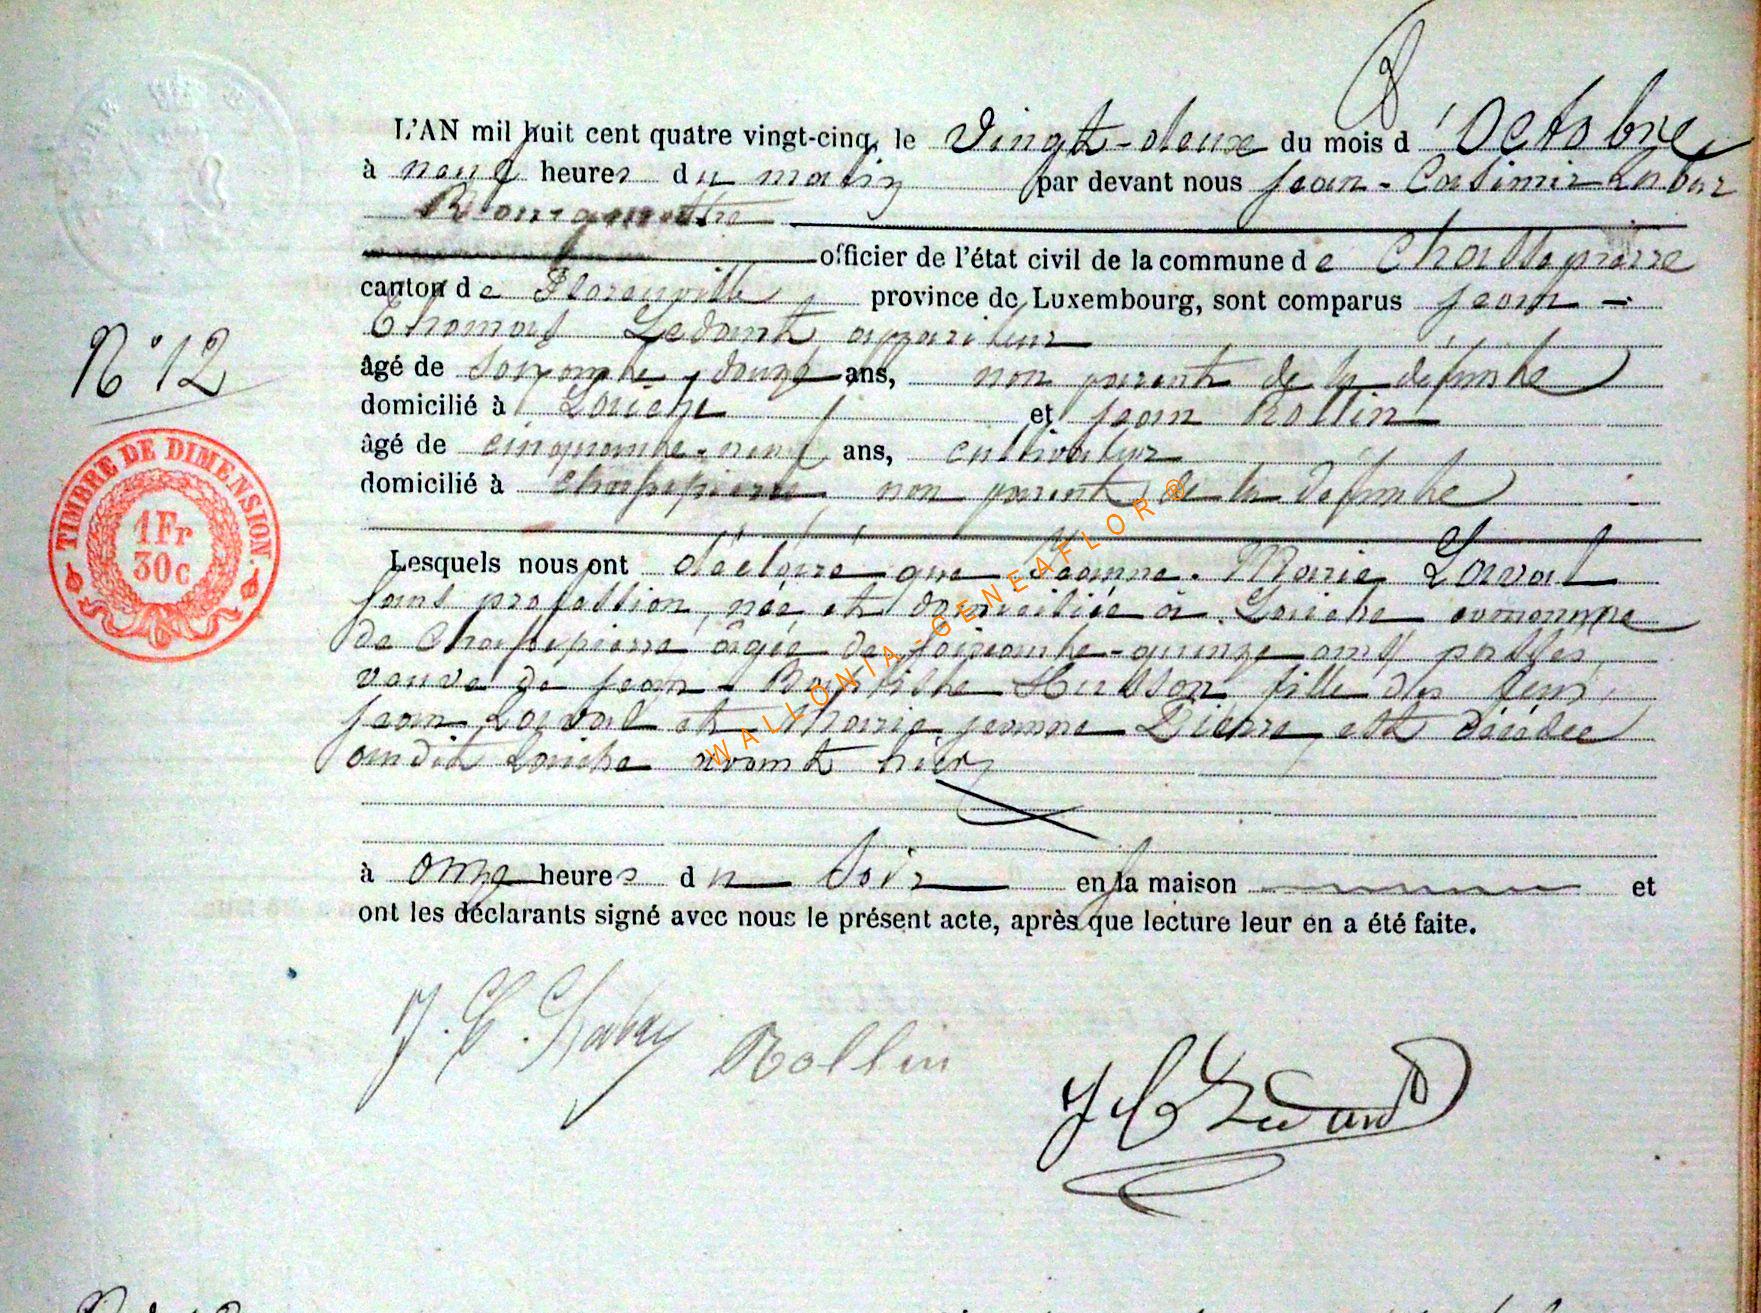 L'AN mil huit cent quatre vingt-cinq, le Vingt-deux du mois d'Octobre
à neuf heures du matin par devant nous Jean-Casimir Labar
Bourgmestre
officier de l'état civil de la commune de Chassepierre
canton de Florenville, province de Luxembourg, sont comparus Jean-
Thomas Ledant appariteur
âgé de soixante-douze ans, non parent de la défunte
domicilié à Laiche et Jean Rollin
âgé de cinquante-neuf ans, cultivateur
domicilié à Chassepierre non parent de la défunte
Lesquels nous ont déclaré que Jeanne-Marie Laval
sans profession, née et domiciliée à Laiche commune
de Chassepierre âgée de soixante-quinze ans passés,
veuve de Jean-Baptiste Husson fille des feus
Jean Laval et Marie Jeanne Pierre, est décédée
audit Laiche avant hier
à onze heures du soir en sa maison et
ont les déclarants signé avec nous le présent acte, après que lecture leur en a été faite.
N° 12
TIMBRE DE DIMENSION.
1Fr
30c
WALLONIA-GENEAFLOR®
J. C. Labar
Rollin
J T Ledant